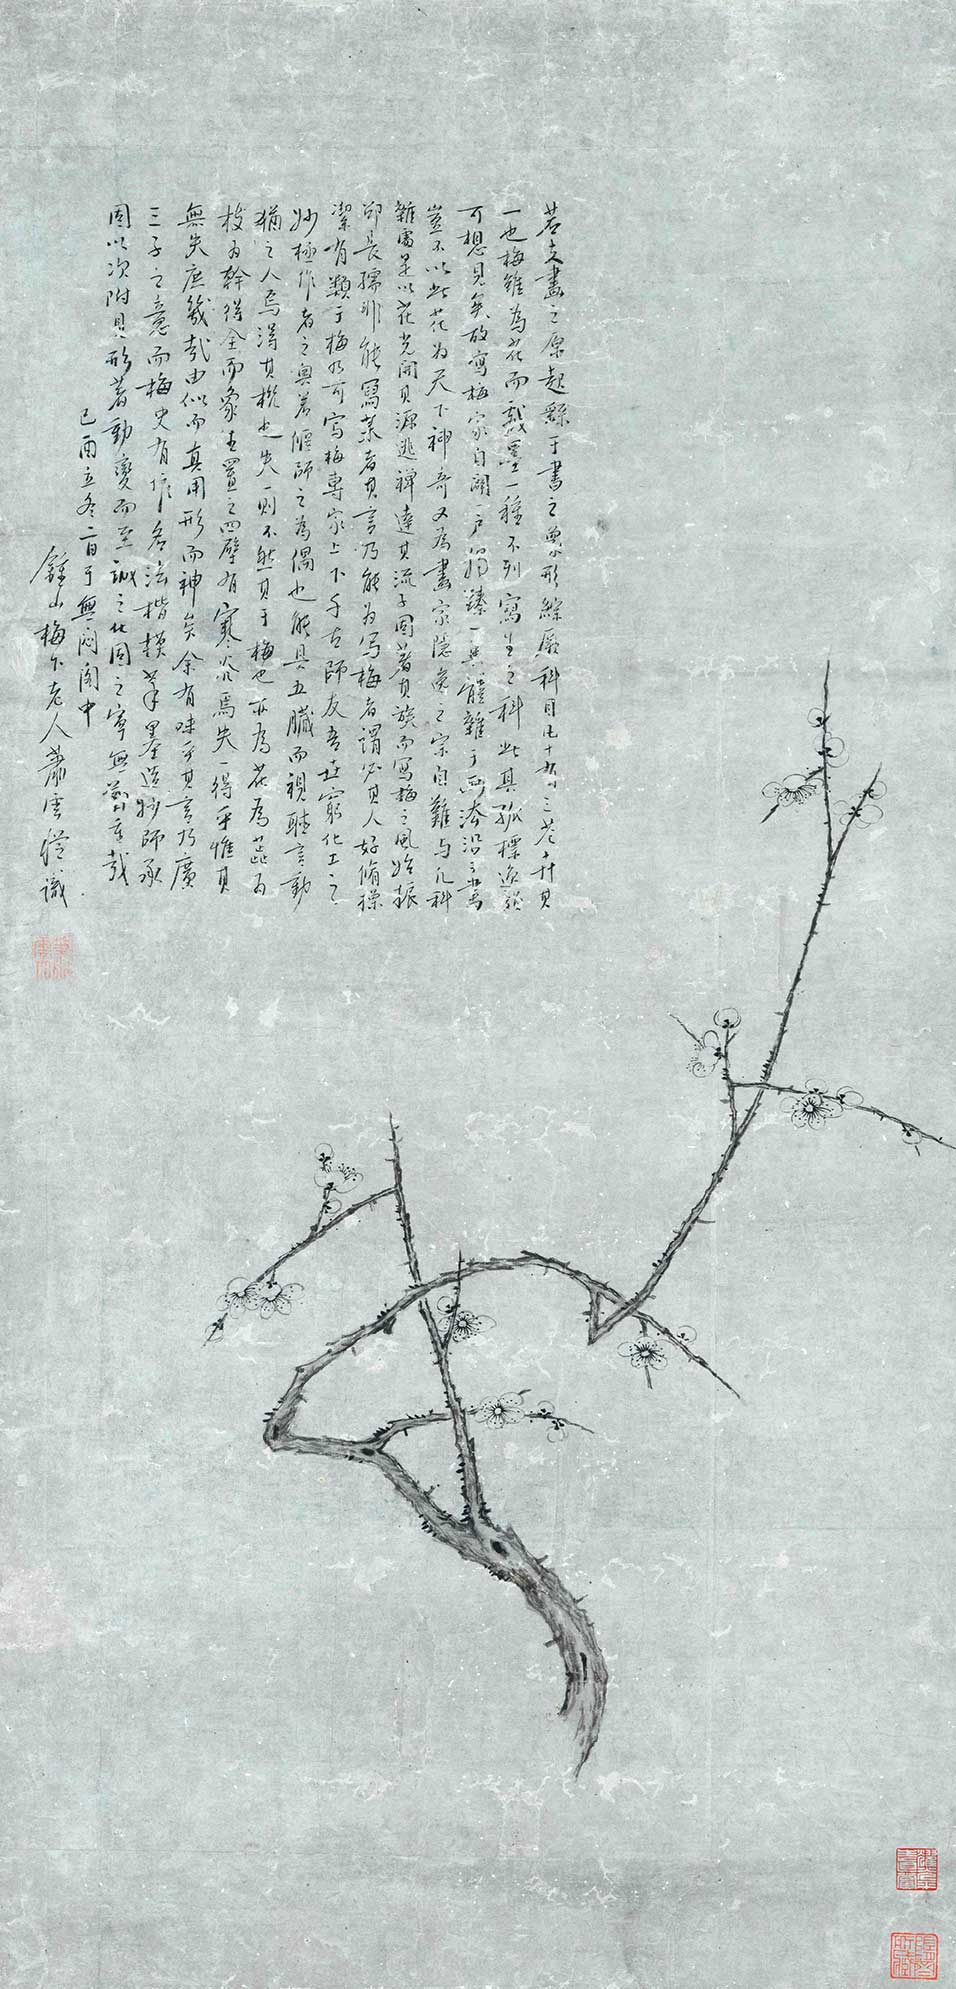 若夫畫之原起繇于書之象形綜厥科目凡十有三花卉其
一也梅雖為花而戲墨一種不列寫生之科此其孤標逸韻
可想見矣故寫梅家自闢一戶獨臻一
豈不以此花為天下神奇又為畫家隱逸之宗自難與凡科
雜處是以花光開其源逃禪達其流子固著其族而寫梅之風始振
邵長孺非能寫菜者其言乃能為写梅者謂必其人好脩操
潔有類于梅乃可寫梅專家上下千古師友吾
妙極作者之奧若偃師之為偶也能具五臟而視聽言動
猶之人焉得其機也失一則不然其于梅也亦為花為蕊為
枝為幹得全而象生置之四壁有寒
無失庶幾哉由似而真用形而神矣余有味乎其言乃廣
三子之意而梅史有作名法楷模筆墨造妙師承
因以次附見形著動變而至誠之化固之寧無
己酉立冬二日于無悶閣中
鍾山梅下老人蕭雲從識